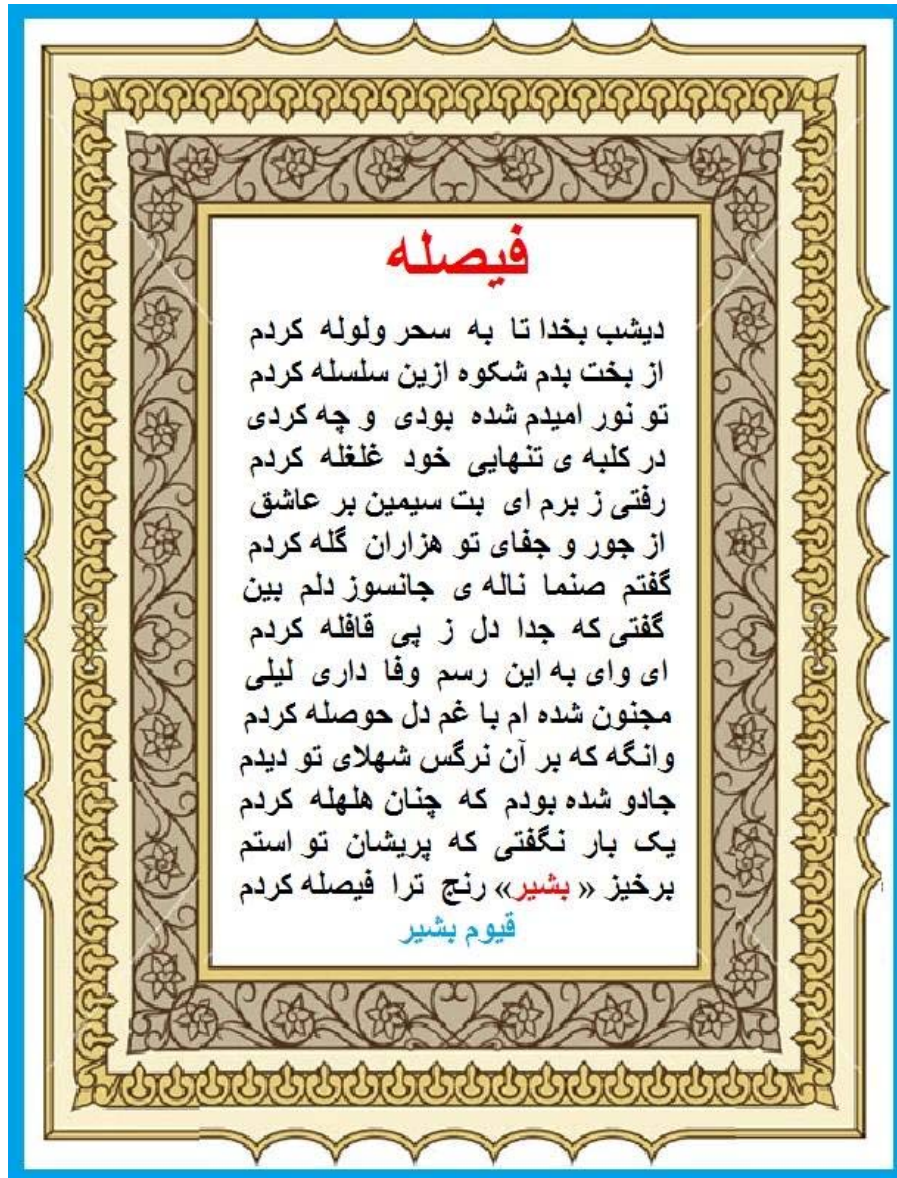 فیصله
دیشب بخدا تا به سحر ولوله کردم
از بخت بدم شکوه ازین سلسله کردم
تو نور امیدم شده بودی و چه کردی
در کلبه ی تنهایی خود غلغله کردم
رفتی ز برم ای بت سیمین بر عاشق
از جور و جفای تو هزاران گله کردم
گفتم صنما ناله ی جانسوز دلم بین
گفتی که جدا دل ز پی قافله کردم
ای وای به این رسم وفا داری لیلی
مجنون شده ام با غم دل حوصله کردم
وانگه که بر آن نرگس شهلای تو دیدم
جادو شده بودم که چنان هلهله کردم
یک بار نگفتی که پریشان تو استم
برخیز « بشیر» رنج ترا فیصله کردم
قیوم بشیر